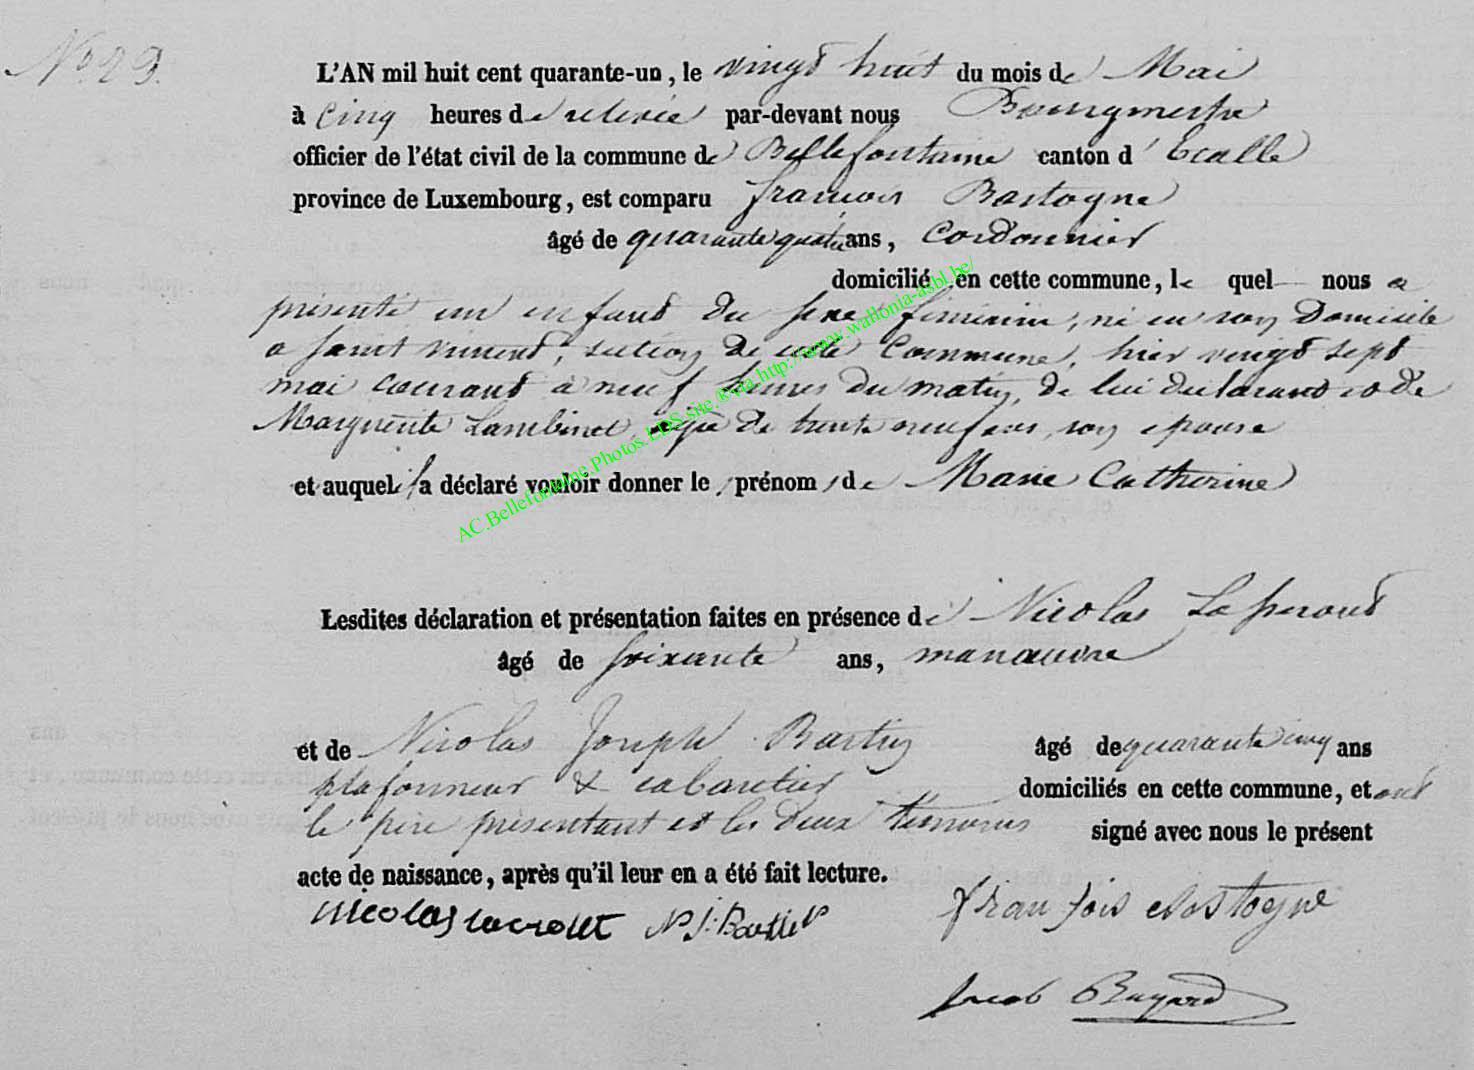 N° 29.
L'AN mil huit cent quarante-un, le vingt huit du mois de Mai
à cinq heures de relevée par-devant nous Bourgmestre
officier de l'état civil de la commune de Bellefontaine canton d'Etalle
province de Luxembourg, est comparu françois Bastogne
âgé de quarante quatre ans, Cordonnier
domicilié en cette commune, le quel nous a
présenté un enfant du sexe féminin, né en son domicile
a saint vincent, section de cette Commune, hier vingt sept
mai courant à neuf heures du matin, de lui déclarant et de
Marguerite Lambinet, agée de trente neuf ans, son épouse
et auquel il a déclaré vouloir donner le prénom de Marie Catherine
AC.Bellefontaine.Photos.LDS.site http://www.wallonia-asbl.be/
Lesdites déclaration et présentation faites en présence de Nicolas
âgé de soixante ans, manœuvre
et de Nicolas Joseph âgé de quarante cinq ans
plafonneur & cabaretier domiciliés en cette commune, et ont
le père présentant et les deux témoins signé avec nous le présent
acte de naissance, après qu'il leur en a été fait lecture.
nicolas N J Bastogne
Jacob